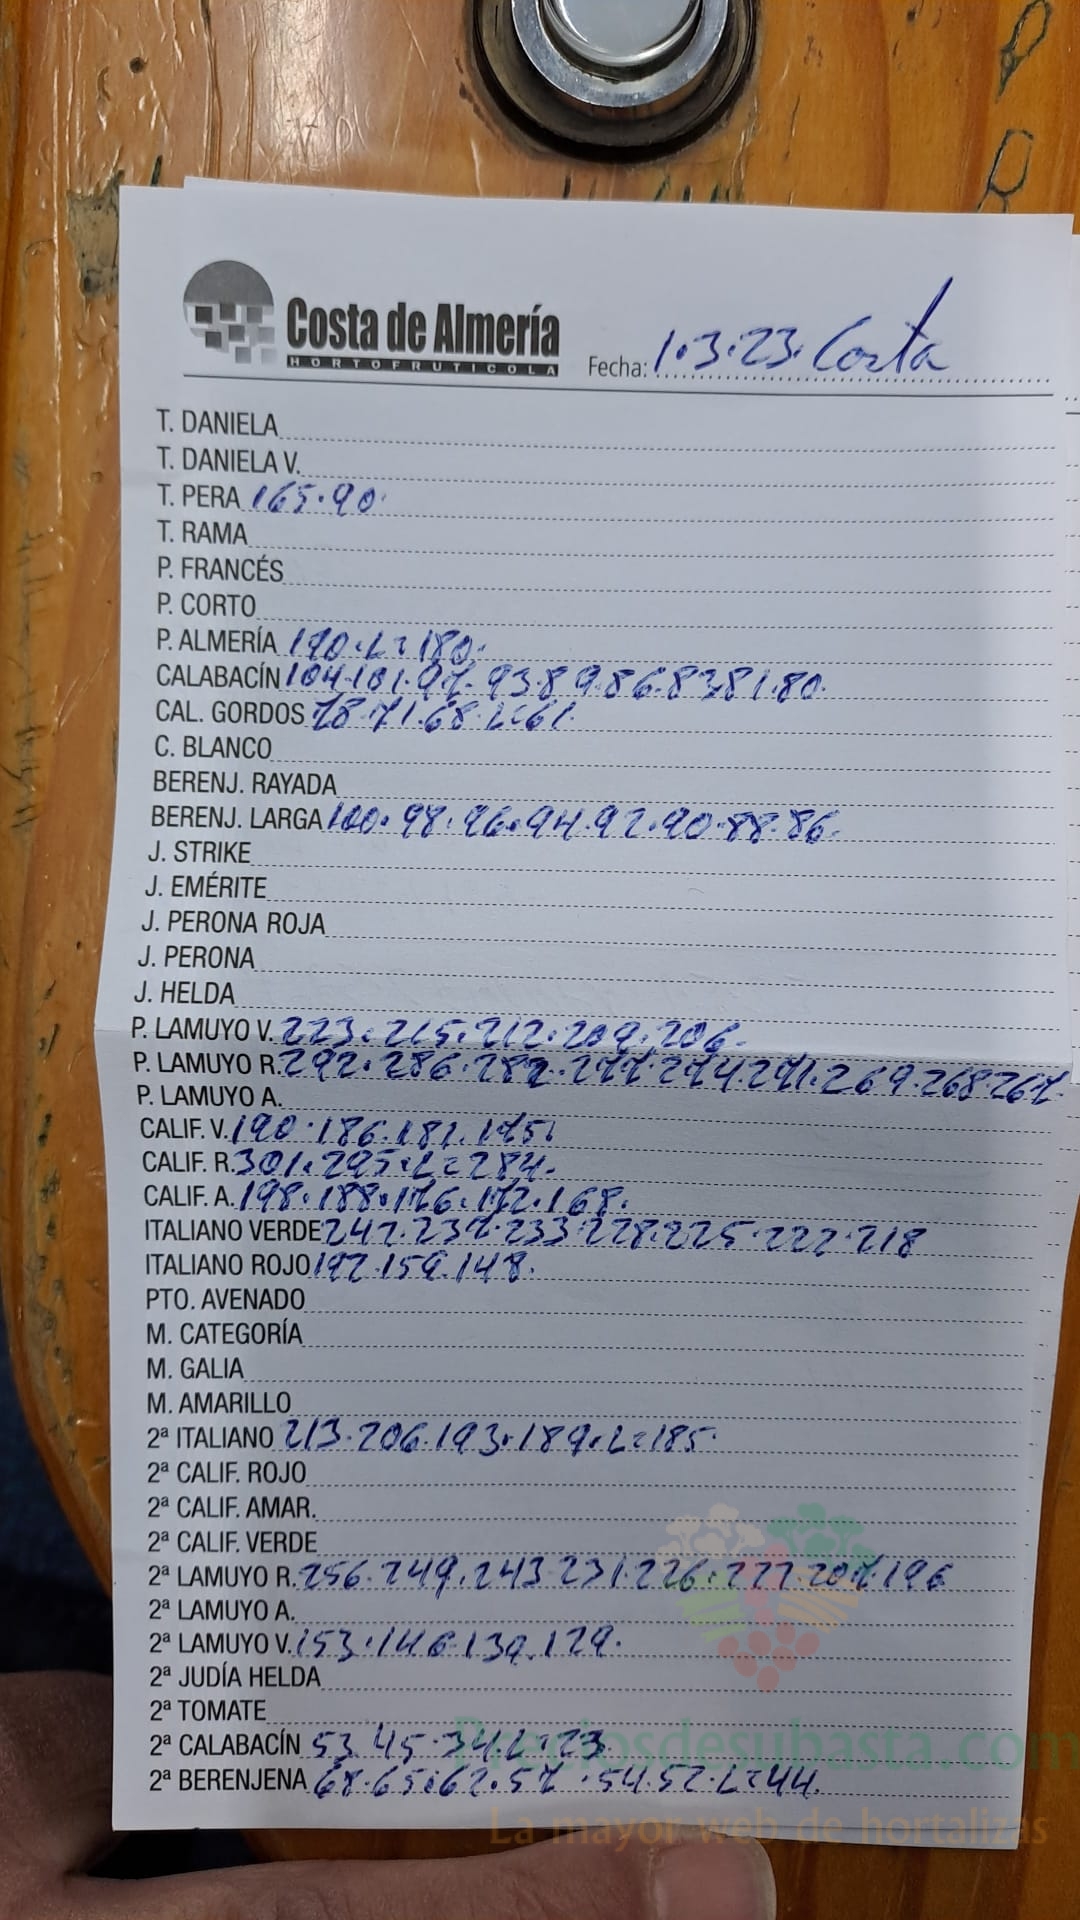 Costa de Almería
HORTOFRUTICOLA
Fecha: 1.3.23. Costa
T. DANIELA
T. DANIELA V.
T. PERA 165.90.
T. RAMA
P. FRANCÉS
P. CORTO
P. ALMERÍA 190.L=180.
CALABACÍN 104.101.97.93.89.86.83.81.80.
CAL. GORDOS 78.71.68.L=61.
C. BLANCO
BERENJ. RAYADA
BERENJ. LARGA 100.98.96.94.92.90.88.86.
J. STRIKE
J. EMÉRITE
J. PERONA ROJA
J. PERONA
J. HELDA
P. LAMUYO V. 223.215.212.209.206.
P. LAMUYO R. 292.286.282.277.274.271.269.268.267.
P. LAMUYO A.
CALIF. V. 190.186.181.175.
CALIF. R. 301.295.L=284.
CALIF. A. 198.188.176.172.168.
ITALIANO VERDE 242.237.233.228.225.222.218
ITALIANO ROJO 192.159.148.
PTO. AVENADO
M. CATEGORÍA
M. GALIA
M. AMARILLO
2ª ITALIANO 213.206.193.189.L=185.
2ª CALIF. ROJO
2ª CALIF. AMAR.
2ª CALIF. VERDE
2ª LAMUYO R. 256.249.243.231.226.222.207.196
2ª LAMUYO A.
2ª LAMUYO V. 153.146.139.129.
2ª JUDÍA HELDA
2ª TOMATE
2ª CALABACÍN 53.45.34.L=23
2ª BERENJENA 68.65.62.57.54.52.L=44.
Preciosdesubasta.com
La mayor web de hortalizas